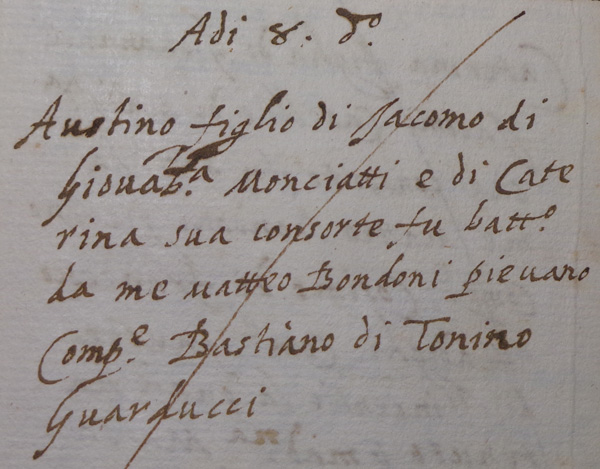 Adi 8. d.º
Austino figlio di Jacomo di
Giovabta. Monciatti e di Cate
rina sua consorte fu batt.º
da me Matteo Bondoni pievano
Comp.e Bastiano di Tonino
Guarducci